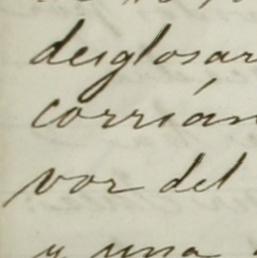 desglosar
corrián
vor del
y una